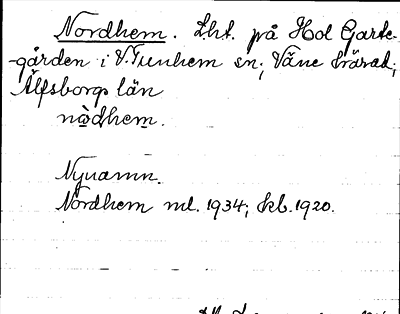 Nordhem. Lht. på Hol Garde-
-gården i V.Tunhem sn; Väne härad;
Älfsborgs län
nòdhem.
Nynamn.
Nordhem ml. 1934; kb. 1920.